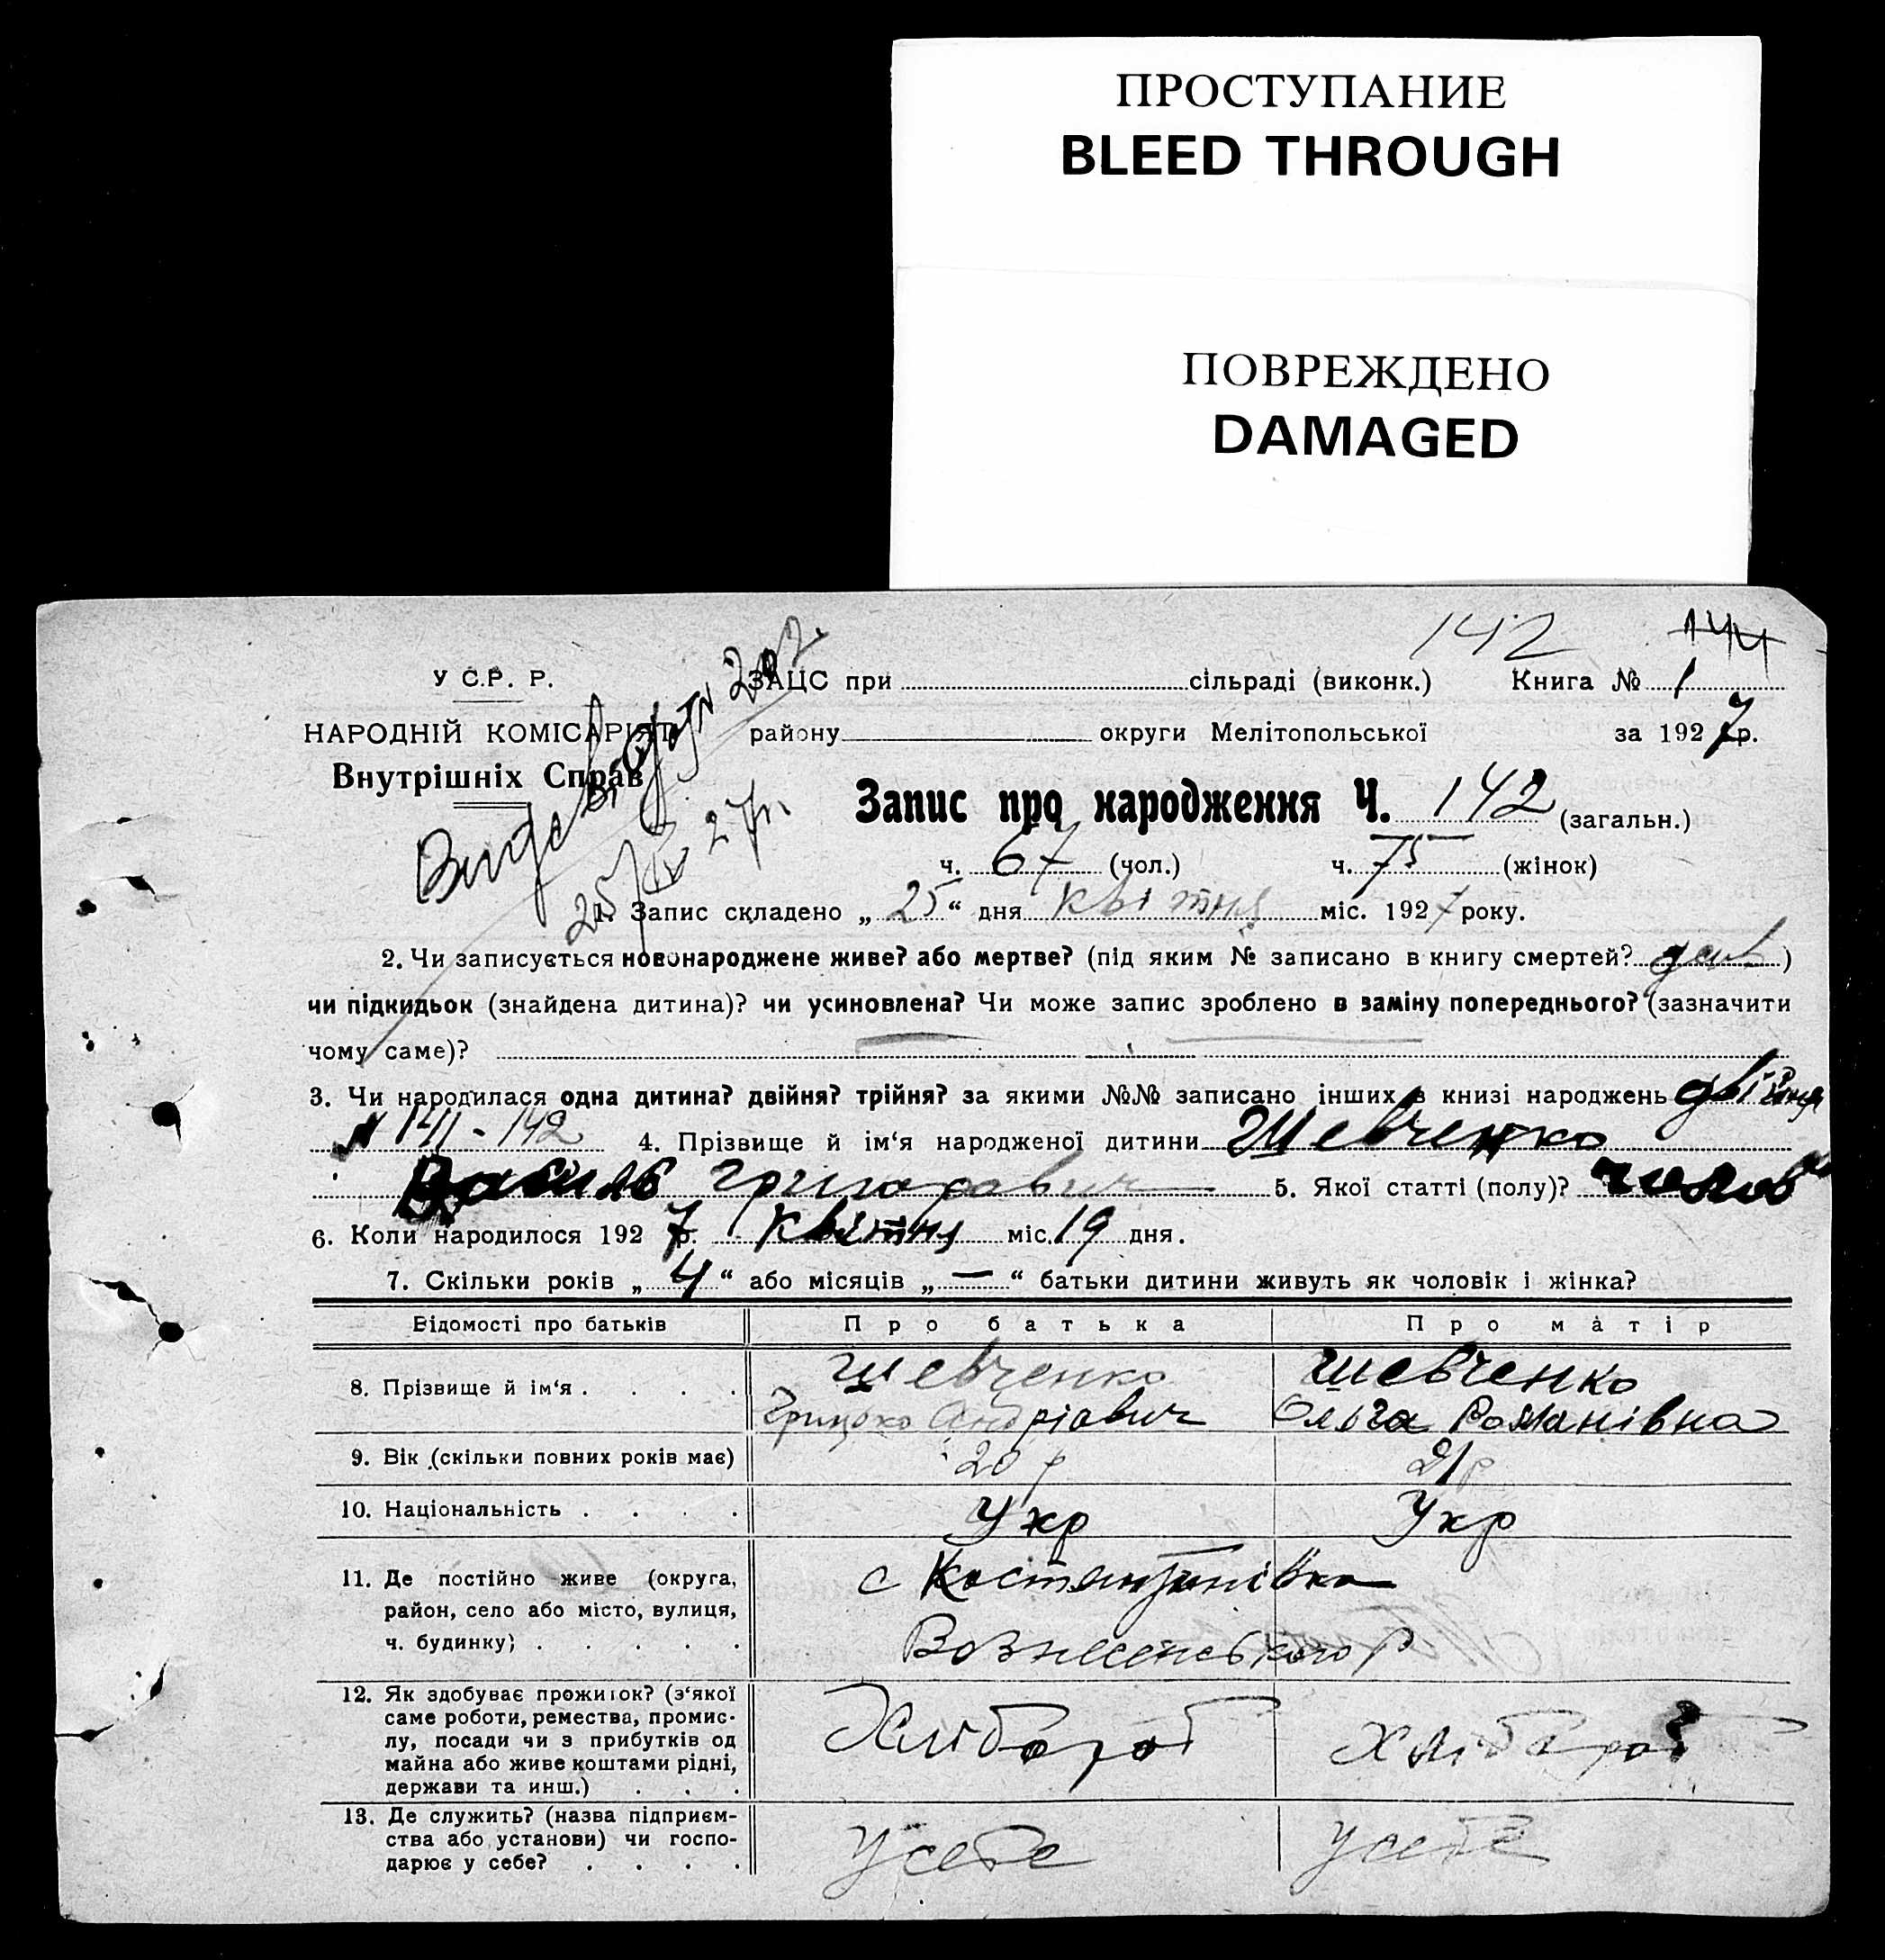 ПРОСТУПАНИЕ
BLEED THROUGH
ПОВРЕЖДЕНО
DAMAGED
142 144
У С.Р. Р. ЗАЦС при сільраді (виконк.) Книга № 1
НАРОДНІЙ КОМІСАРІЯТ району округи Мелітопольської за 1927 р.
Внутрішніх Справ
Запис про народження Ч. 142 (загальн.)
ч. 67 (чол.) ч. 75 (жінок)
25/IV 27 р.
1. Запис складено „ 25 “ дня квітня міс. 1927 року.
2. Чи записується новонароджене живе? або мертве? (під яким № записано в книгу смертей? )
чи підкидьок (знайдена дитина)? чи усиновлена? Чи може запис зроблено в заміну попереднього? (зазначити
чому саме)?
3. Чи народилася одна дитина? двійня? трійня? за якими №№ записано інших в книзі народжень двійня
№ 141 - 142 4. Прізвище й ім‘я народженої дитини Шевченко
Василь Григорович 5. Якої статті (полу)? чолов
6. Коли народилося 1927 р. квітня міс. 19 дня.
7. Скільки років „ 4 “ або місяців „ — “ батьки дитини живуть як чоловік і жінка?
Відомості про батьків Про батька Про матір
8. Прізвище й ім‘я . . . . Шевченко Шевченко
Грицько Андріович Ольга Романівна
9. Вік (скільки повних років має) 20 р 21 р
10. Національність . . . . Укр Укр
11. Де постійно живе (округа, с Костянтинівка
район, село або місто, вулиця,
ч. будинку) . . . . . Вознесенського Р
12. Як здобуває прожиток? (з‘якої
саме роботи, ремества, промис-
лу, посади чи з прибутків од Хлібороб Хлібороб
майна або живе коштами рідні,
держави та инш.) . . .
13. Де служить? (назва підприєм-
ства або установи) чи госпо- У себе У себе
дарює у себе? . . . .